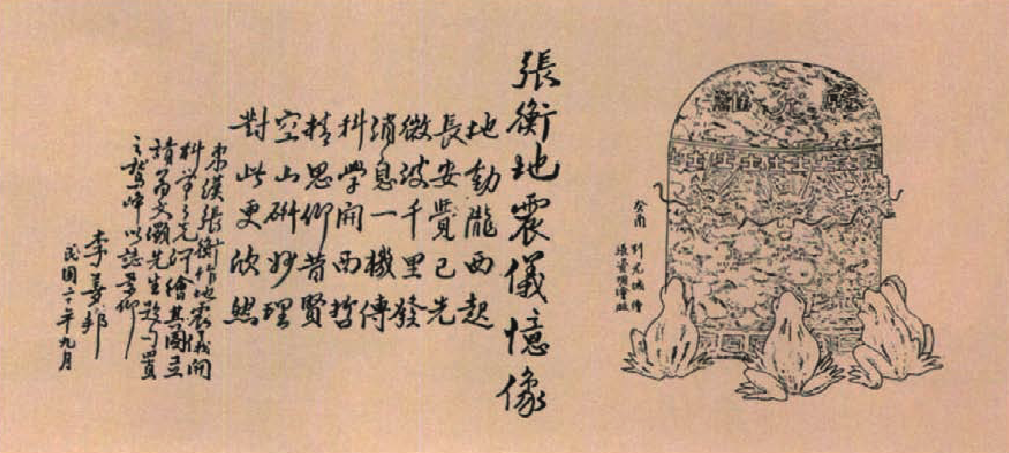 癸酉
張衡地震儀憶像
地動隴西起
長安覺已先
微波千里發
消息一機傳
科學開西哲
精思仰昔賢
空山研妙理
對此更欣然
東漢張衡作地震儀開
科學之先河繪其圖並
請翁文灝先生題句置
之鷲峰以誌景仰
李善邦
民國二十二年九月